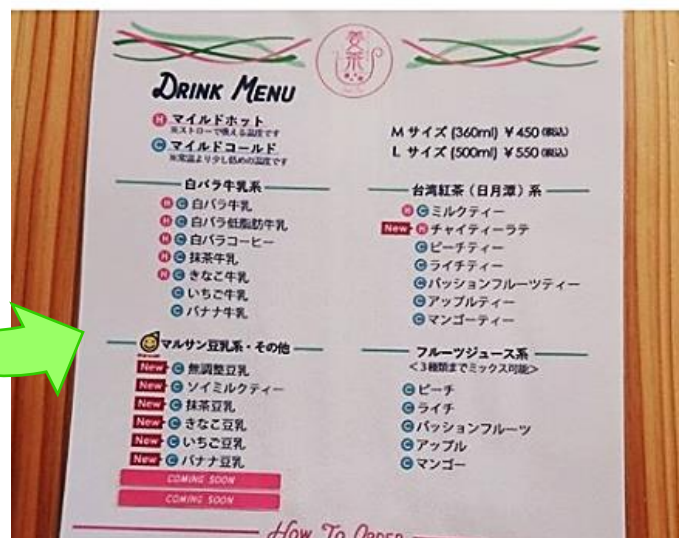 姜茶
DRINK MENU
H マイルドホット
※ストローで飲える温度です
C マイルドコールド
※常温より少し低めの温度です
M サイズ (360ml) ¥450 (税込)
L サイズ (500ml) ¥550 (税込)
白バラ牛乳系
H C 白バラ牛乳
H C 白バラ低脂肪牛乳
H C 白バラコーヒー
H C 抹茶牛乳
H C きなこ牛乳
C いちご牛乳
C バナナ牛乳
マルサン豆乳系・その他
New C 無調整豆乳
New C ソイミルクティー
New C 抹茶豆乳
New C きなこ豆乳
New C いちご豆乳
New C バナナ豆乳
COMING SOON
COMING SOON
台湾紅茶（日月潭）系
H C ミルクティー
New H チャイティーラテ
C ピーチティー
C ライチティー
C パッションフルーツティー
C アップルティー
C マンゴーティー
フルーツジュース系
<3種類までミックス可能>
C ピーチ
C ライチ
C パッションフルーツ
C アップル
C マンゴー
HOW TO ORDER